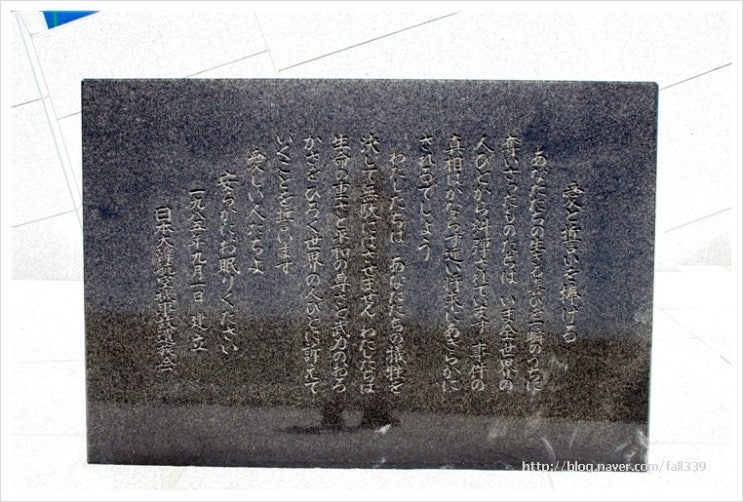 愛と誓いを捧げる
あなたたちの生きる喜びを一瞬のうちに
奪いさったものたちは いま全世界の
人びとから糾弾されています 事件の
真相はかならず近い将来にあきらかに
されるでしょう
わたしたちは あなたたちの犠牲を
決して無駄にはさせません わたしたちは
生命の重さと平和の尊さと武力のおろ
かさをひろく世界の人びとに訴えて
いくことを誓います
愛しい人たちよ
安らかにお眠りください
一九八五年九月一日 建立
日本大韓航空機事故遺族会
http://blog.naver.com/fall339